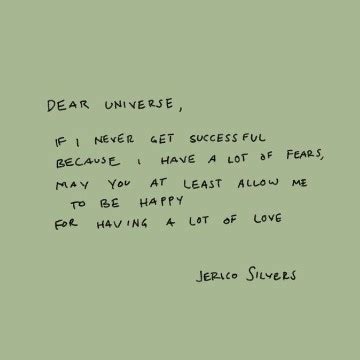 DEAR UNIVERSE,
IF I NEVER GET SUCCESSFUL
BECAUSE I HAVE A LOT OF FEARS,
MAY YOU AT LEAST ALLOW ME
TO BE HAPPY
FOR HAVING A LOT OF LOVE
JERICO SILVERS